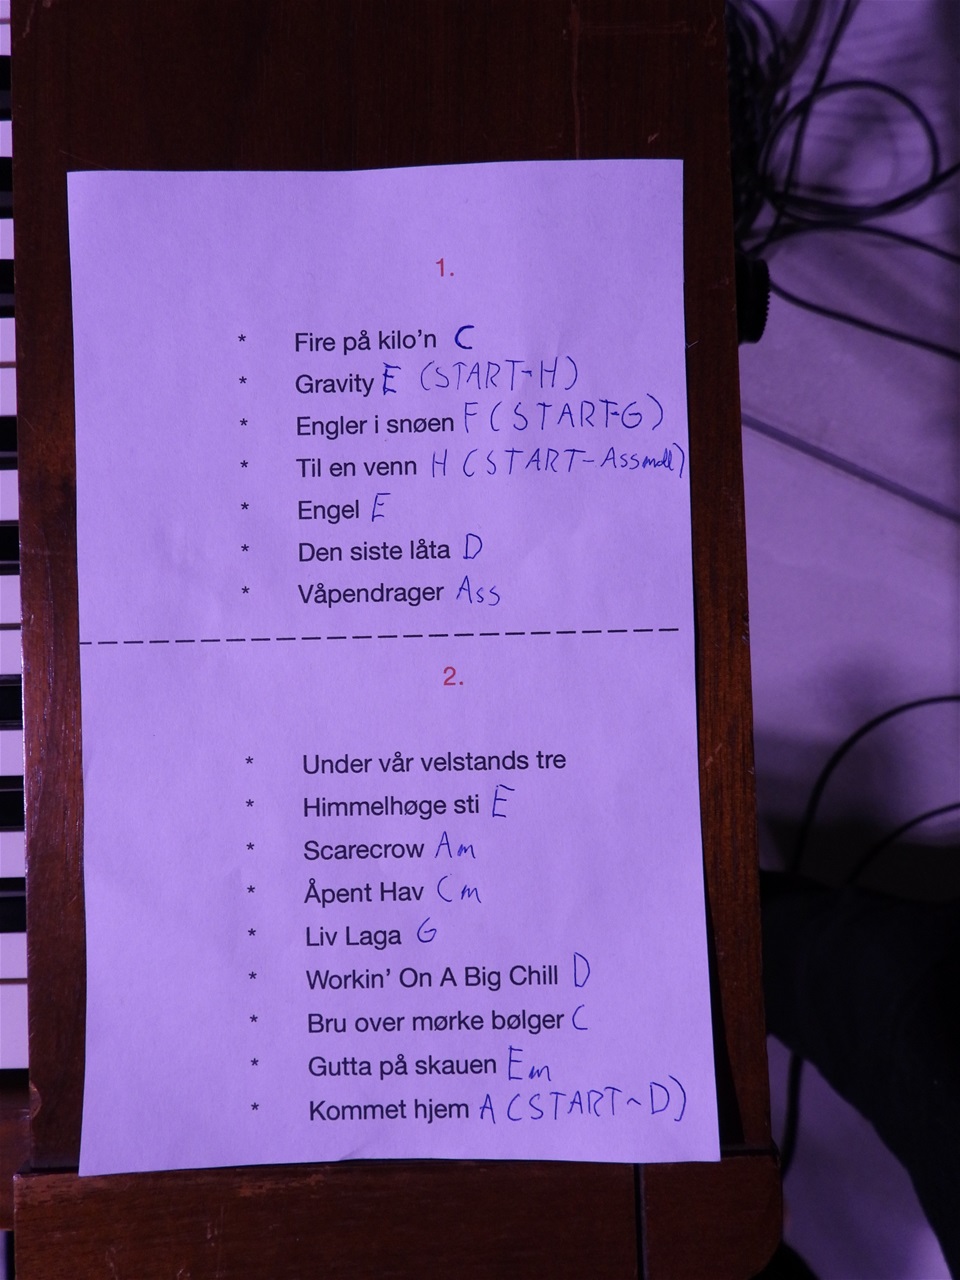 1.
* Fire på kilo'n C
* Gravity E (START-H)
* Engler i snøen F (START-G)
* Til en venn H (START-Assmoll)
* Engel E
* Den siste låta D
* Våpendrager Ass
2.
* Under vår velstands tre
* Himmelhøge sti E
* Scarecrow Am
* Åpent Hav Cm
* Liv Laga G
* Workin' On A Big Chill D
* Bru over mørke bølger C
* Gutta på skauen Em
* Kommet hjem A (START~D)